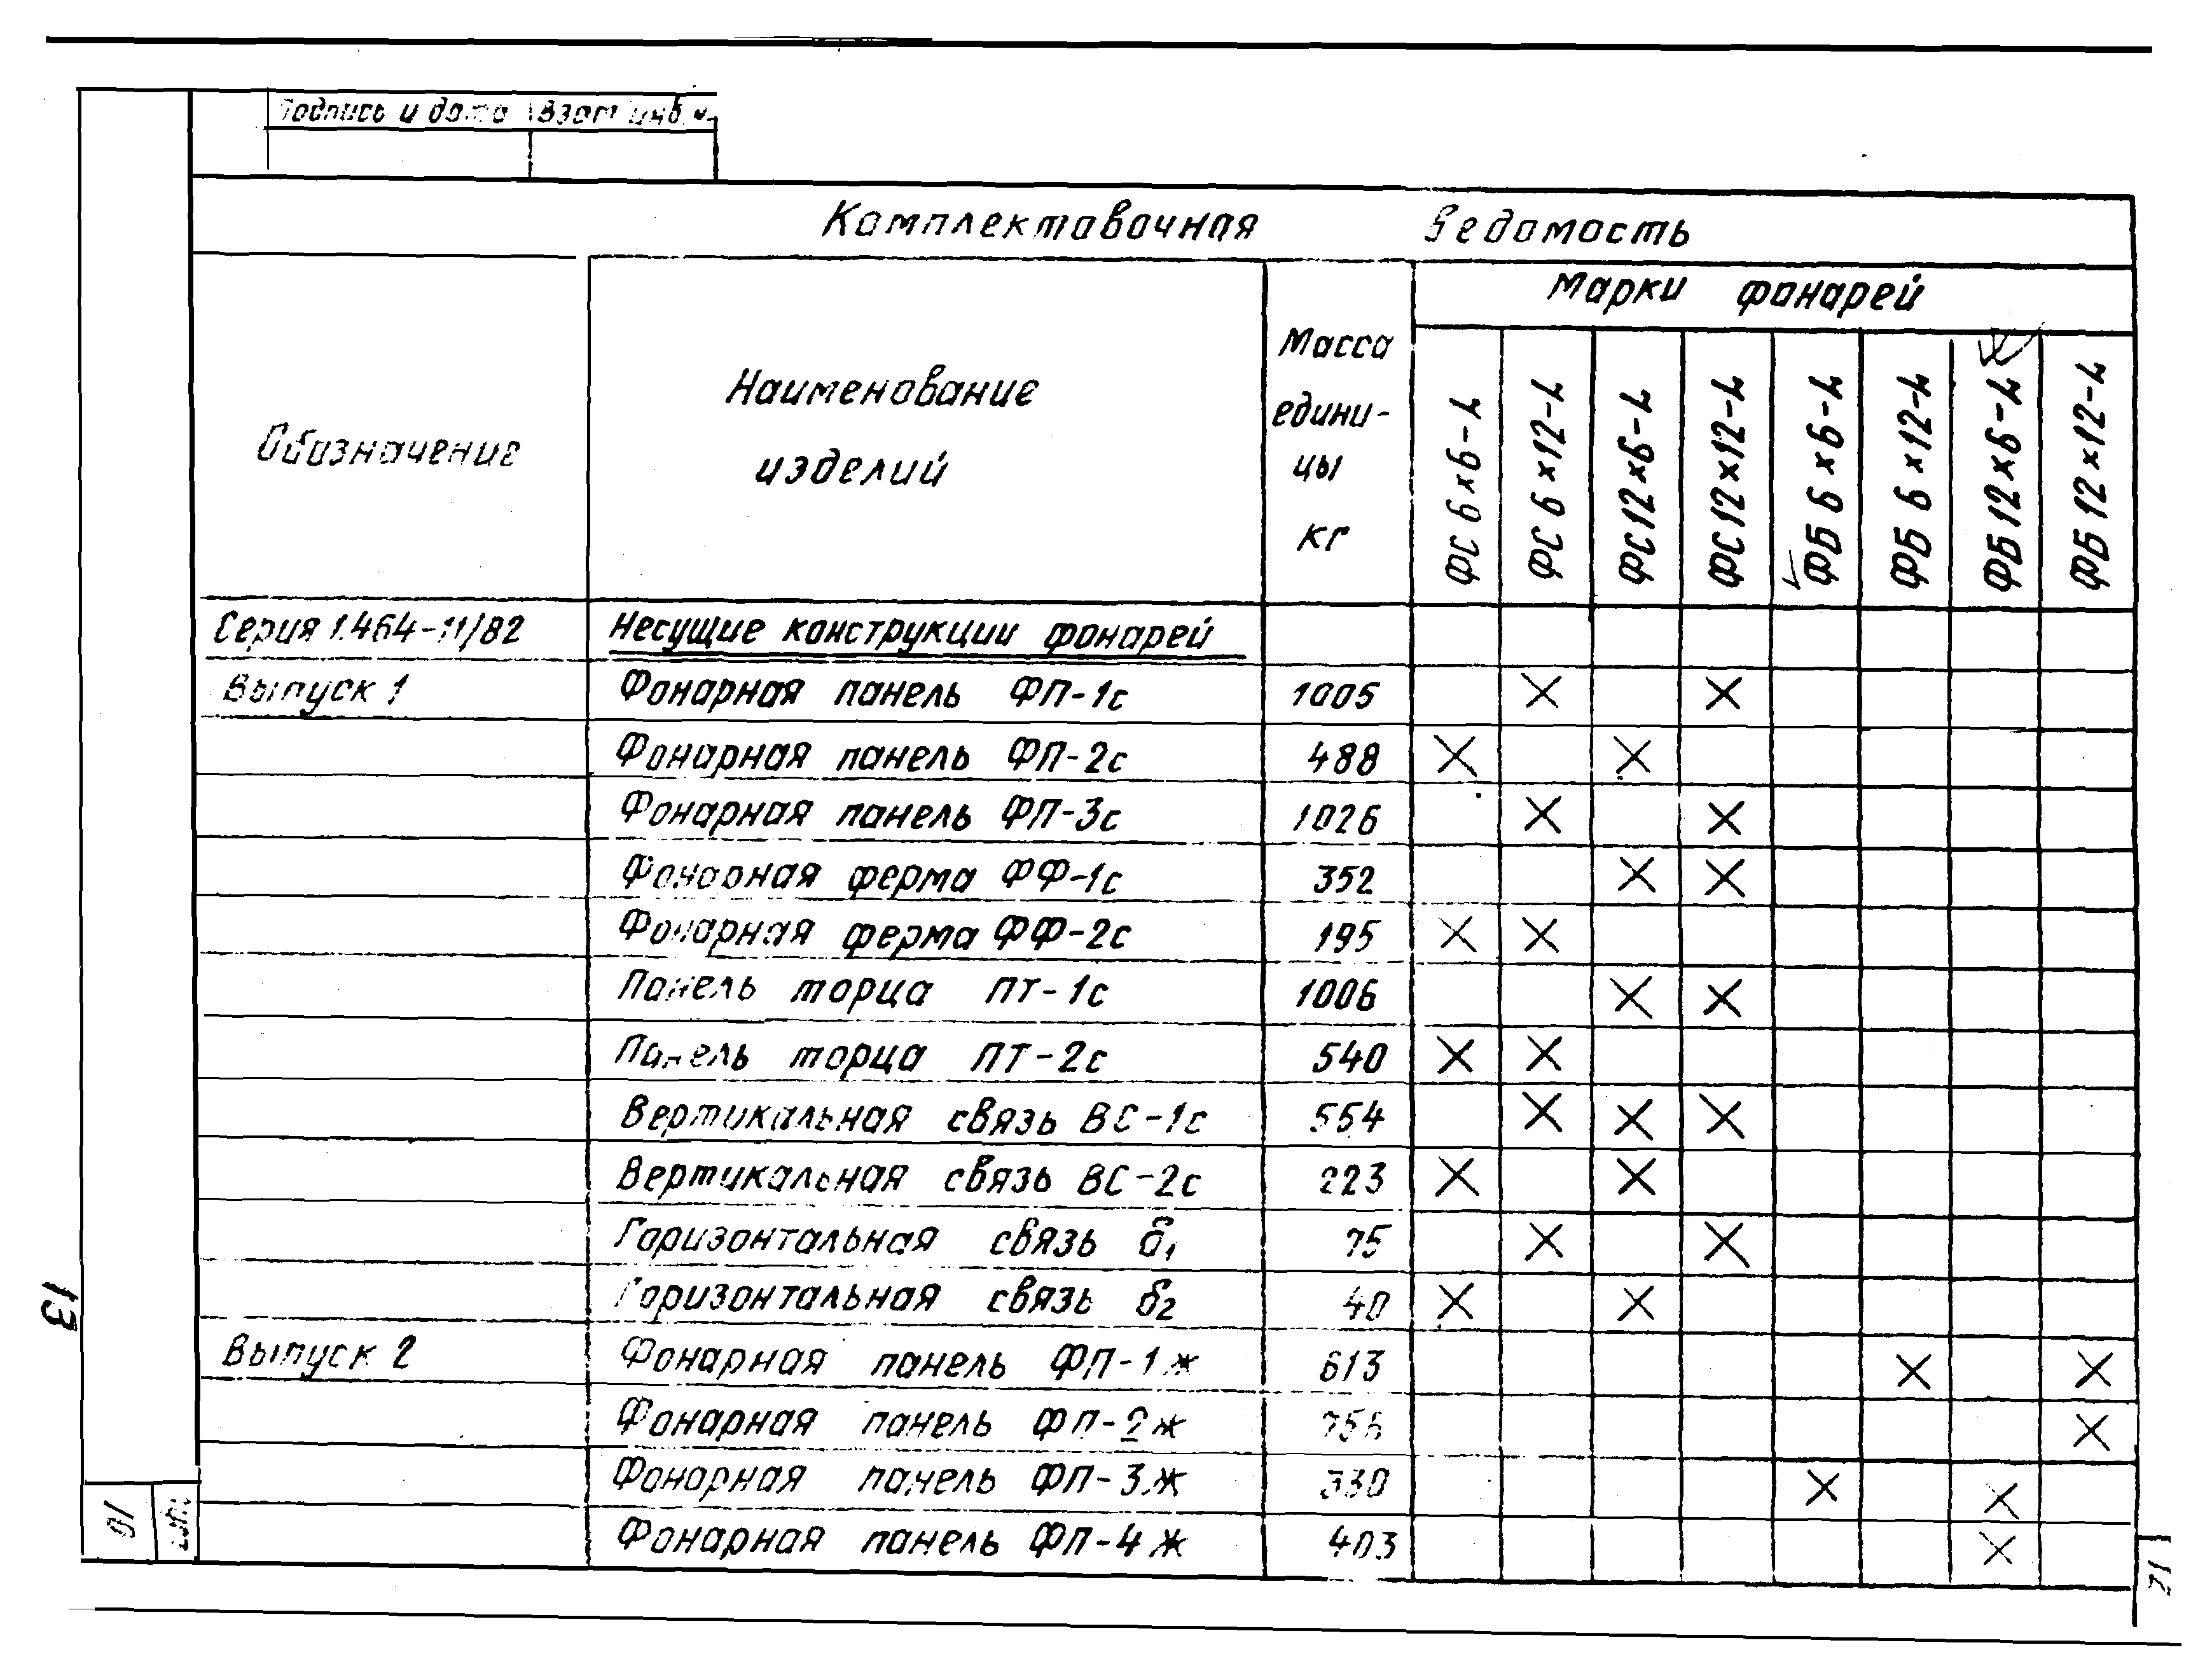 Подпись и дата Взам инв. №
Комплектовочная ведомость
Обозначение
Наименование изделий
Масса едини- цы кг
Марки фонарей
ФС 6×6-L
ФС 6×12-L
ФС 12×6-L
ФС 12×12-L
ФБ 6×6-L
ФБ 6×12-L
ФБ 12×6-L
ФБ 12×12-L
Серия 1.464-11/82 Несущие конструкции фонарей
Выпуск 1 Фонарная панель ФП-1с 1005 × ×
Фонарная панель ФП-2с 488 × ×
Фонарная панель ФП-3с 1026 × ×
Фонарная ферма ФФ-1с 352 × ×
Фонарная ферма ФФ-2с 195 × ×
Панель торца ПТ-1с 1006 × ×
Панель торца ПТ-2с 540 × ×
Вертикальная связь ВС-1с 554 × × ×
Вертикальная связь ВС-2с 223 × ×
Горизонтальная связь б1 75 × ×
Горизонтальная связь б2 40 × ×
Выпуск 2 Фонарная панель ФП-1ж 613 × ×
Фонарная панель ФП-2ж ×
Фонарная панель ФП-3ж 330 × ×
Фонарная панель ФП-4ж 403 ×
13